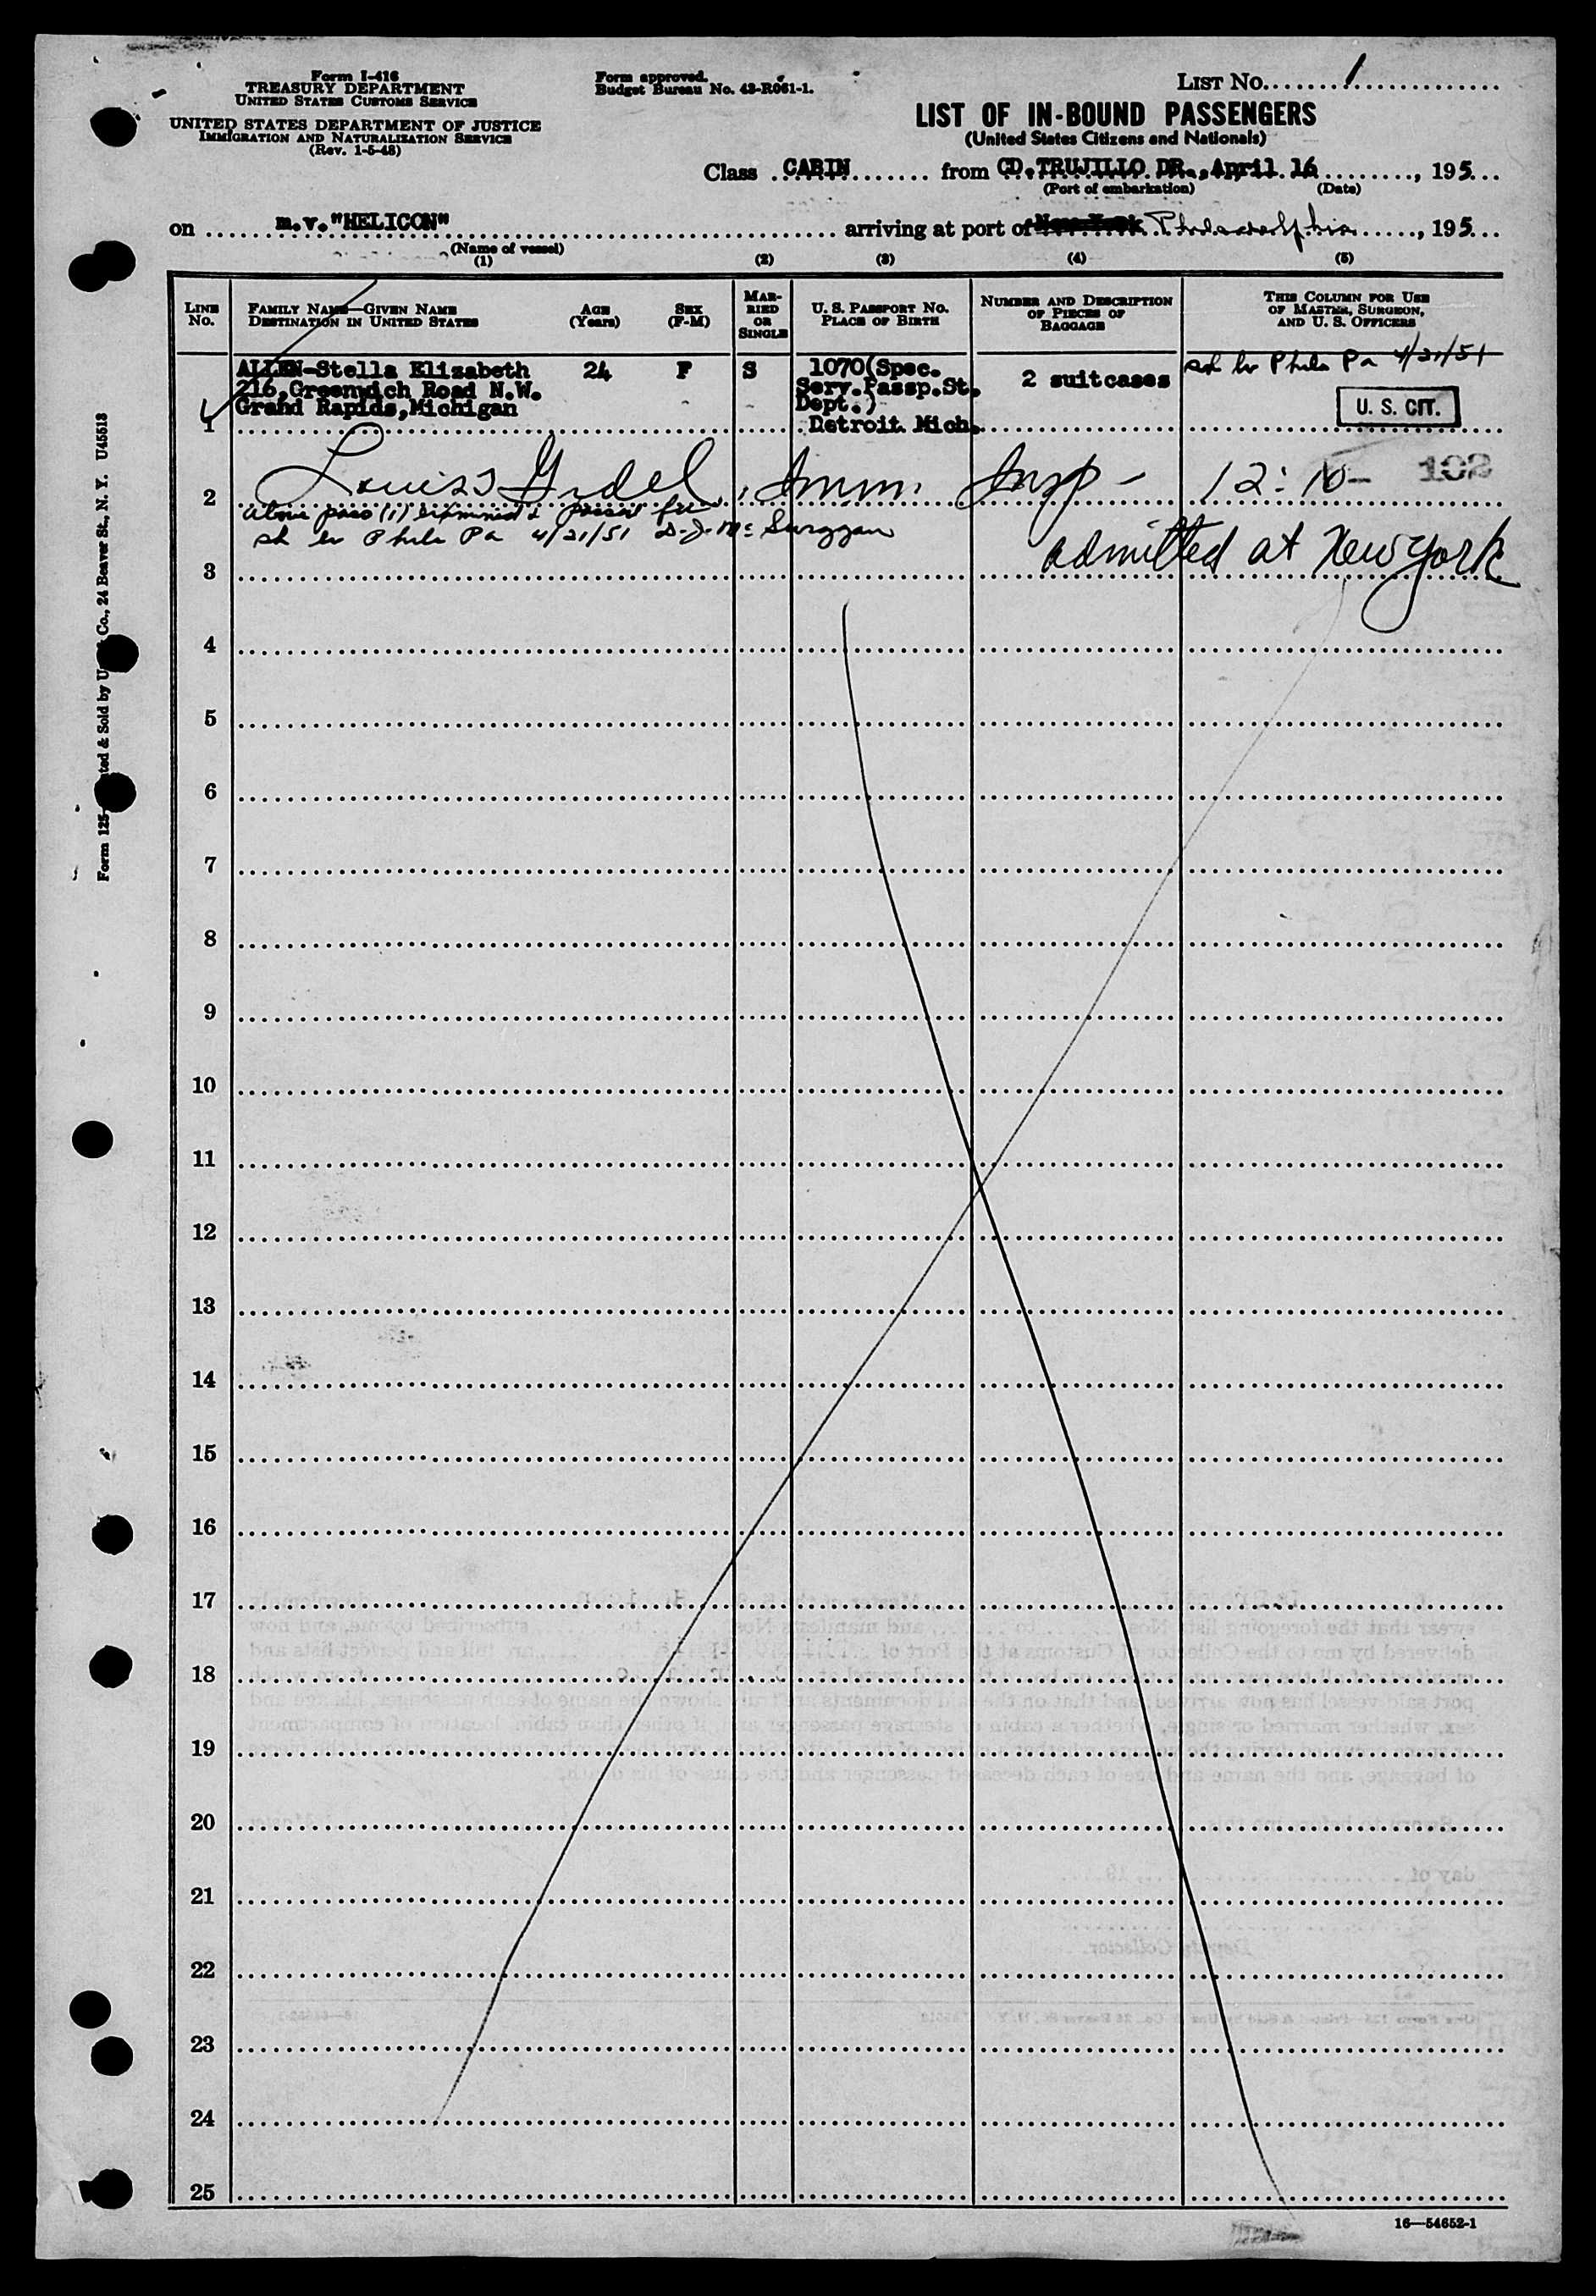 Form I-416
TREASURY DEPARTMENT
UNITED STATES CUSTOMS SERVICE
UNITED STATES DEPARTMENT OF JUSTICE
IMMIGRATION AND NATURALIZATION SERVICE
(Rev. 1-5-48)
Form approved.
Budget Bureau No. 43-R061-1.
LIST No. 1
LIST OF IN-BOUND PASSENGERS
(United States Citizens and Nationals)
Class CABIN from CD.TRUJILLO DR., April 16, 195
(Port of embarkation) (Date)
on m.v."HELICON" arriving at port of New York Philadelphia, 195
(Name of vessel)
(1) (2) (3) (4) (5)
LINE No. FAMILY NAME—GIVEN NAME DESTINATION IN UNITED STATES AGE (Years) SEX (F-M) MARRIED OR SINGLE U. S. PASSPORT No. PLACE OF BIRTH NUMBER AND DESCRIPTION OF PIECES OF BAGGAGE THIS COLUMN FOR USE OF MASTER, SURGEON, AND U. S. OFFICERS
ALLEN-Stella Elizabeth 24 F S 1070(Spec. 2 suitcases Phila Pa 4/21/51
216,Greenwich Road N.W. Serv.Passp.St.
Grand Rapids,Michigan Dept.) U. S. CIT.
1 Detroit Mich.
2 Louis Gidel, Imm. Insp - 12:10- 102
above pass (1) examined & passed free
Phila Pa 4/21/51 D. J. Mc
3 admitted at New York
4
5
6
7
8
9
10
11
12
13
14
15
16
17
18
19
20
21
22
23
24
25
16—54652-1
Form 125 Sold by Co., 24 Beaver St., N. Y. U45513